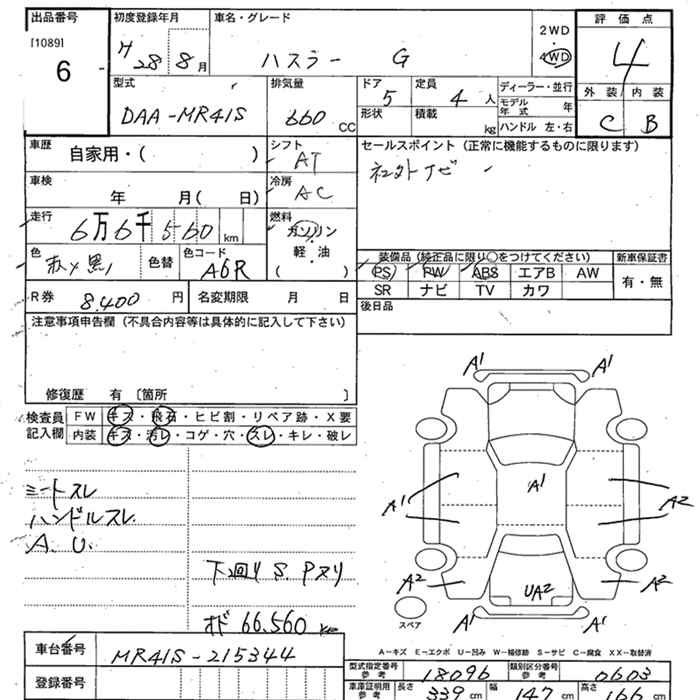 出品番号
[1089]
6
初度登録年月
H 28 8月
車名・グレード
ハスラー G
2WD
4WD
評価点
4
外装 内装
C B
型式
DAA-MR41S
排気量
660 CC
ドア
5
定員
4 人
形状
積載
kg
ディーラー・並行
モデル年式 年
ハンドル 左・右
車歴
自家用・( )
シフト
AT
セールスポイント (正常に機能するものに限ります)
社外ナビ
車検
年 月( 日)
冷房
AC
走行
6万6千560 km
燃料
ガソリン
軽・油
( )
色
赤×黒
色替
色コード
A6R
装備品(純正品に限り○をつけてください)
PS PW ABS エアB AW
SR ナビ TV カワ
新車保証書
有・無
R券 8,400 円
名変期限 月 日
後日品
注意事項申告欄 (不具合内容等は具体的に記入して下さい)
修復歴 有 〔箇所 〕
検査員記入欄
FW キズ・飛石・ヒビ割・リペア跡・X要
内装 キズ・汚レ・コゲ・穴・スレ・キレ・破レ
シートスレ
ハンドルスレ
A.U.
下廻り S.Pヌリ
オド 66,560 km
A1 A1
A1 A1 A2
A2 UA2 A2
スペア
A-キズ E-エクボ U-凹み W-補修跡 S-サビ C-腐食 XX-取替済
車台番号
MR41S-215344
登録番号
型式指定番号 参考
18096
類別区分番号 参考
0603
車庫証明用 参考
長さ 339 cm
幅 147 cm
高さ 166 cm